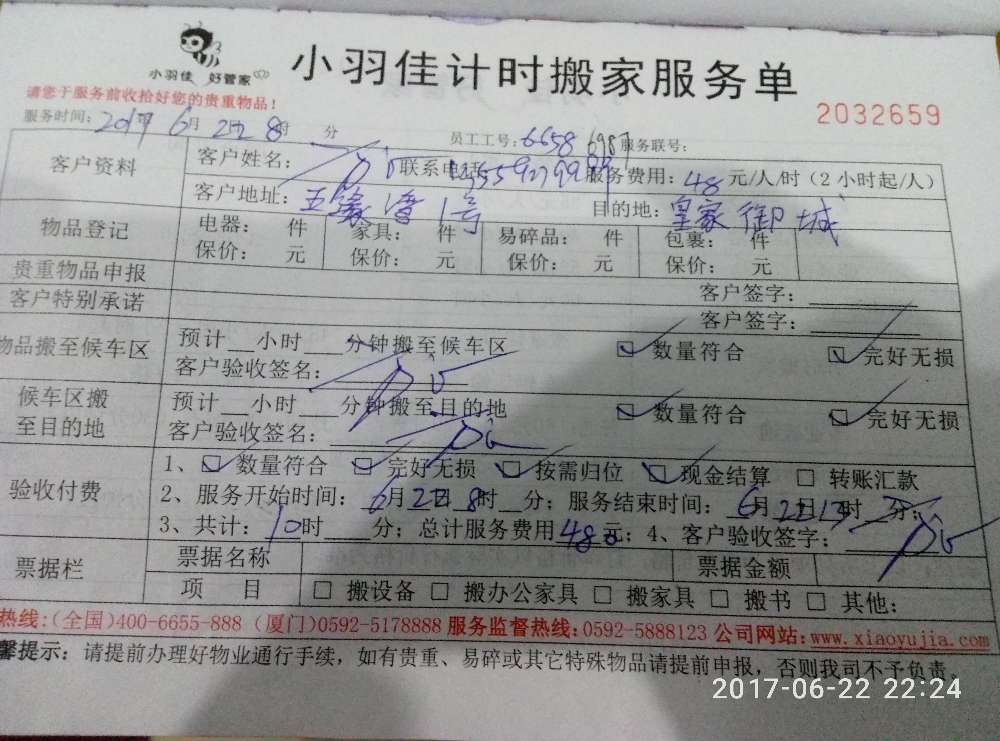 小羽佳 好管家
小羽佳计时搬家服务单
请您于服务前收拾好您的贵重物品！
2032659
服务时间：2017年6月22日8时 分 员工工号：6658 6987 服务联号：
客户资料 客户姓名： 联系电话 服务费用：48元/人/时（2小时起/人）
客户地址：五缘湾1号 目的地：皇家御城
物品登记 电器： 件 家具： 件 易碎品： 件 包裹： 件
保价： 元 保价： 元 保价： 元 保价： 元
贵重物品申报 客户签字：
客户特别承诺 客户签字：
物品搬至候车区 预计 小时 分钟搬至候车区 数量符合 完好无损
客户验收签名：
候车区搬至目的地 预计 小时 分钟搬至目的地 数量符合 完好无损
客户验收签名：
验收付费 1、数量符合 完好无损 按需归位 现金结算 转账汇款
2、服务开始时间：6月22日8时 分；服务结束时间：6月22日13时 分；
3、共计：10时 分；总计服务费用480元；4、客户验收签字：
票据栏 票据名称 票据金额
项 目 搬设备 搬办公家具 搬家具 搬书 其他：
热线：(全国)400-6655-888 (厦门)0592-5178888 服务监督热线：0592-5888123 公司网站：www.xiaoyujia.com
馨提示：请提前办理好物业通行手续，如有贵重、易碎或其它特殊物品请提前申报，否则我司不予负责。
2017-06-22 22:24